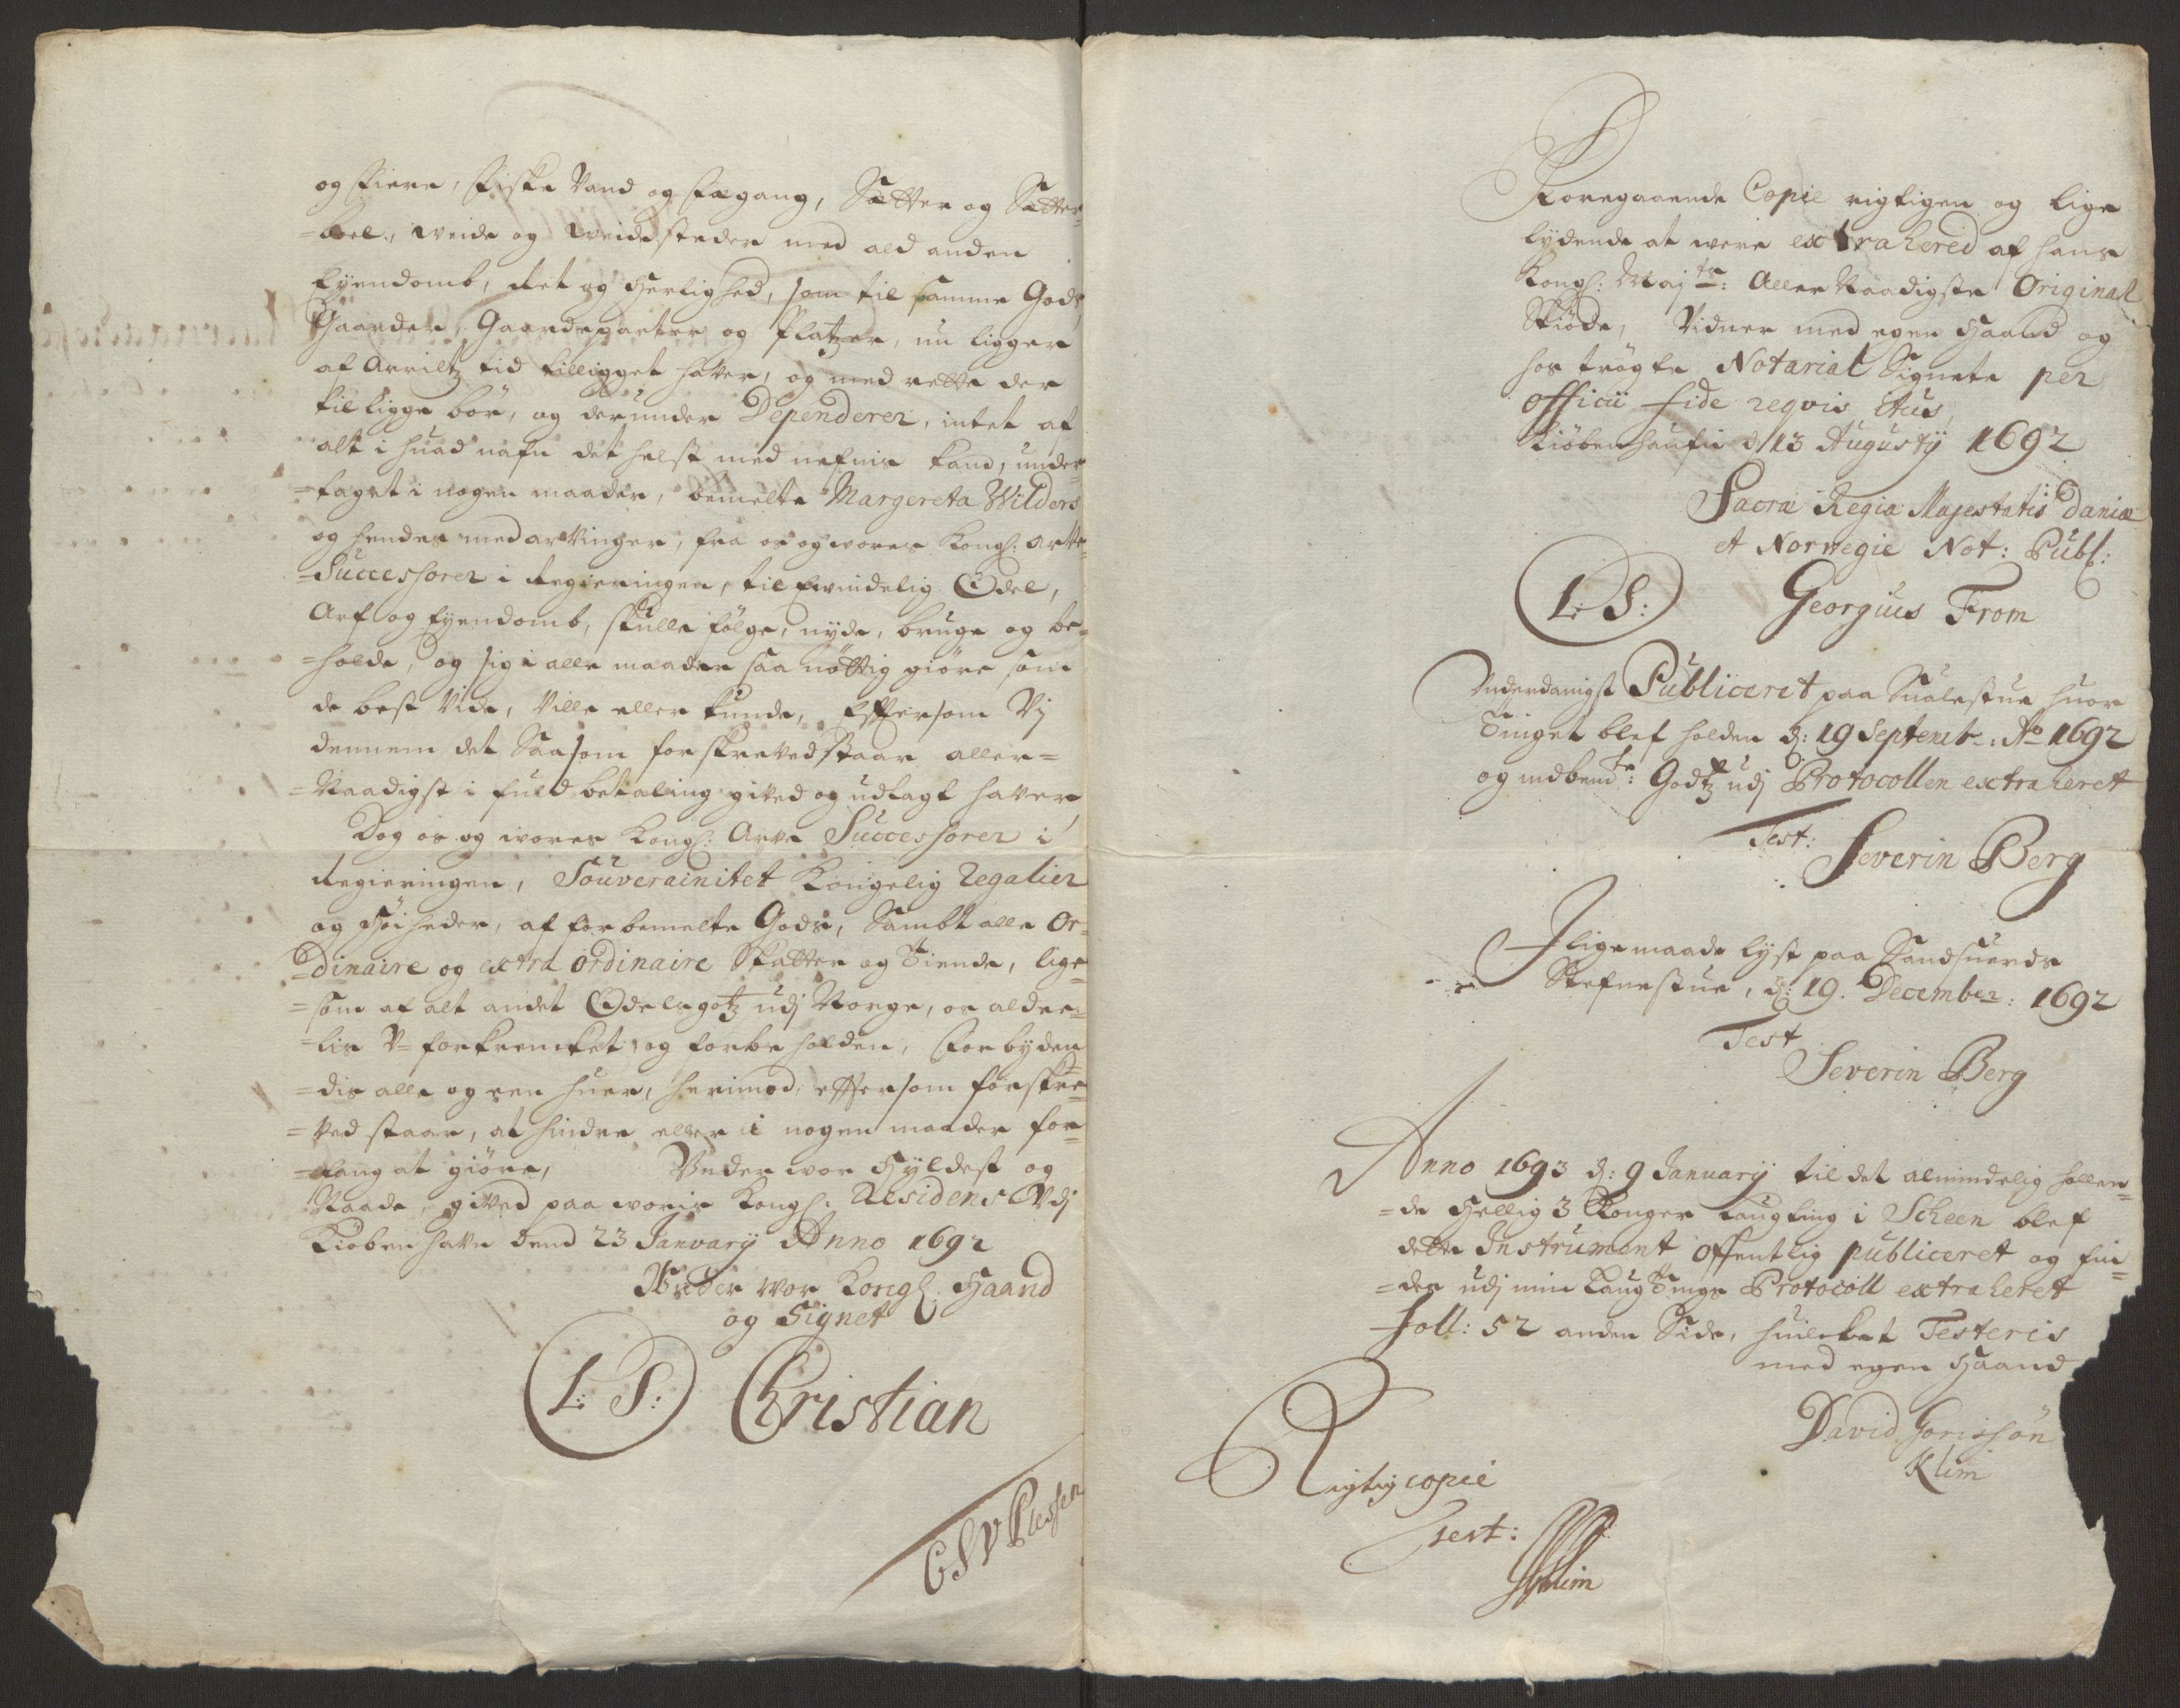 og Fiere, Fiske Vand og Fægang, Sætter og Sætter-
=boel, weide og weidesteder med ald anden
Eyendomb, Ret og Herlighed, som til samme Gods,
Gaarder, Gaardeparter og Platzer, nu ligger
af Arriltz tid tilligget hafver, og med rette der
til ligge bör, og derunder Dependerer, intet af
alt i huad nafn det helst med nefnis kand, under
=taget i nogen maader, bemelte Margereta Wilders
og hendes medarvinger, fra os og wores Kongl: Arfve
=Successorer i Regieringen, til Ewindelig Odel,
Arf og Eyendomb, skulle følge, nyde, bruge og be=
=holde, og sig i alle maader saa nøttig giøre, som
de best Vide, Ville eller kunde, Effersom Vj
dennem det Saasom forskrevedstaar aller=
=Naadigst i fuld betaling gived og udlagt hafver,
Dog os og wores Kongl: Arve Successorer i
Regieringen, Souverainitet Kongelig Regalier
og Høiheder, af forbemelte Gods, Sambt alle Or=
=dinaire og extra ordinaire Skatter og Tiende, lige=
=som af alt andet Odelsgotz udj Norge, os aldee=
=lis V=forkrencket og forbeholden, Forbyden=
=dis alle og een huer, herimod, effersom forskre=
=ved staar, at hindre eller i nogen maader for=
=fang at giöre, Vnder wor Hyldest og
Naade, gived paa woris Kongl. Residens Vdj
Kiöbenhavn dend 23 Januarij Anno 1692
Under wor Kongl. Haand
og Signet
L: S: Christian
C S V Plessen
Foregaaende Copie rigtigen og lige
lydende at were extrahered af hans
Kongl: Maj:ts: Aller Naadigste Original
Skiöde, Vidner med egen Haand og
hos trögte Notarial Signete per
officii fide reqvis itus,
Kiöbenhaufn d 13 Augustij 1692
Sacræ Regiæ Majestatis Daniæ
et Norwegie Not: Publ:
L: S: Georgius From
Underdanigst Publiceret paa Sualestue huor
Tinget blef holden d: 19 Septemb: Ao 1692
og indbemte: Godtz udj Protocollen extraheret
Test:
Severin Berg
I lige maade lyst paa Sandsuerds
Stefnestue, d: 19. December: 1692
Test
Severin Berg
Anno 1693 d: 9 Januarij til det almindelig hollen=
=de Hellig 3 Konger Laugting i Scheen blef
dette Instrument offentlig publiceret og fin=
=des udj min LaugTings Protocoll extraheret
Foll: 52 anden Side, huilcket Testeris
med egen Haand
David Jorisøn
Klim
Rigtig copie
Test:
Klim